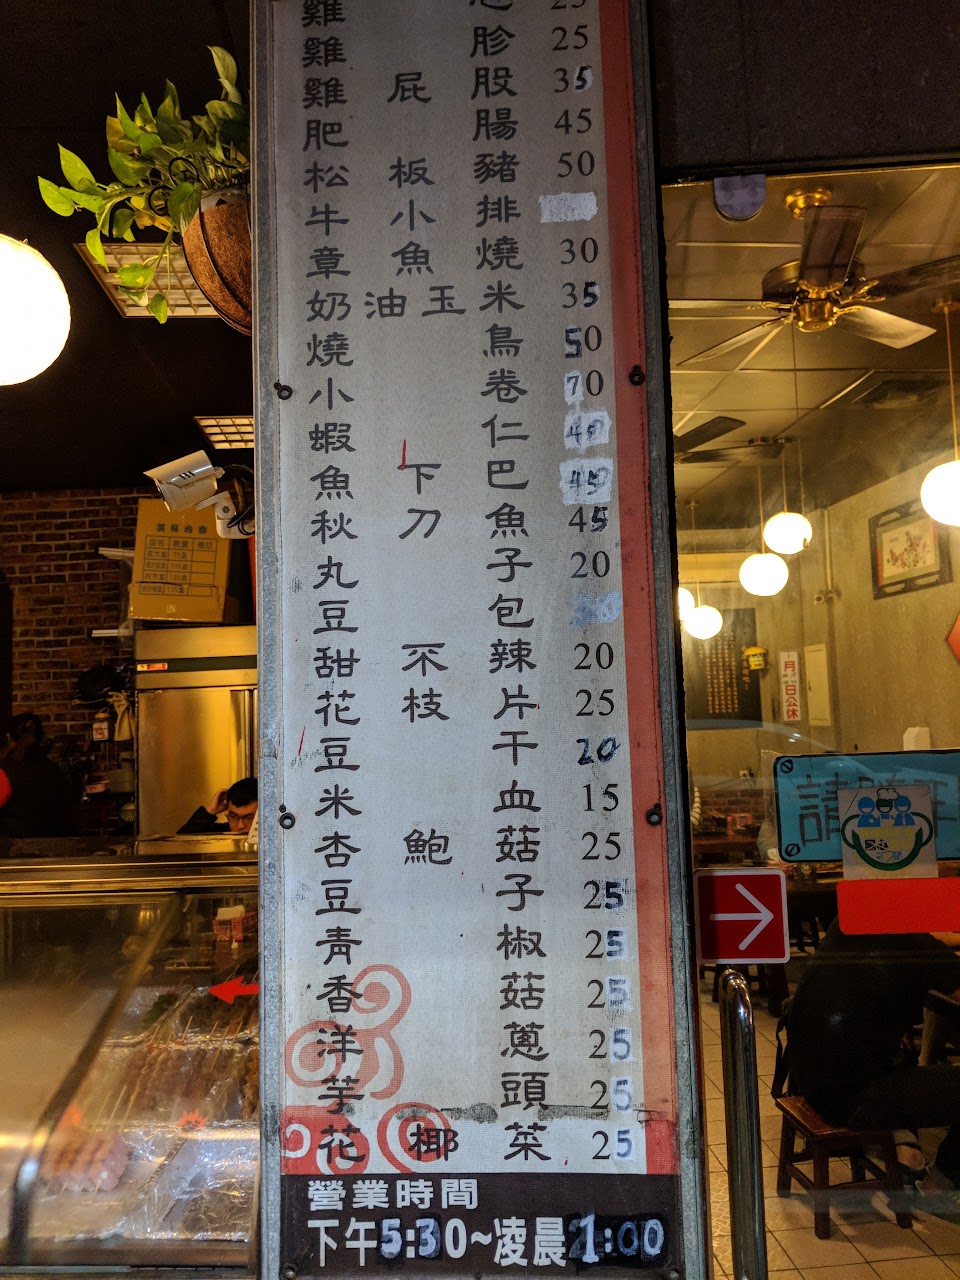 雞 25
雞胗 25
雞屁股 35
肥腸 45
松板豬 50
牛小排
章魚燒 30
奶油玉米 35
燒鳥 50
小卷 70
蝦仁 40
魚下巴 45
秋刀魚 45
丸子 20
豆包
甜不辣 20
花枝片 25
豆干 20
米血 15
杏鮑菇 25
豆子 25
青椒 25
香菇 25
洋蔥 25
芋頭 25
花椰菜 25
營業時間
下午5:30~凌晨1:00
月 日公休
請